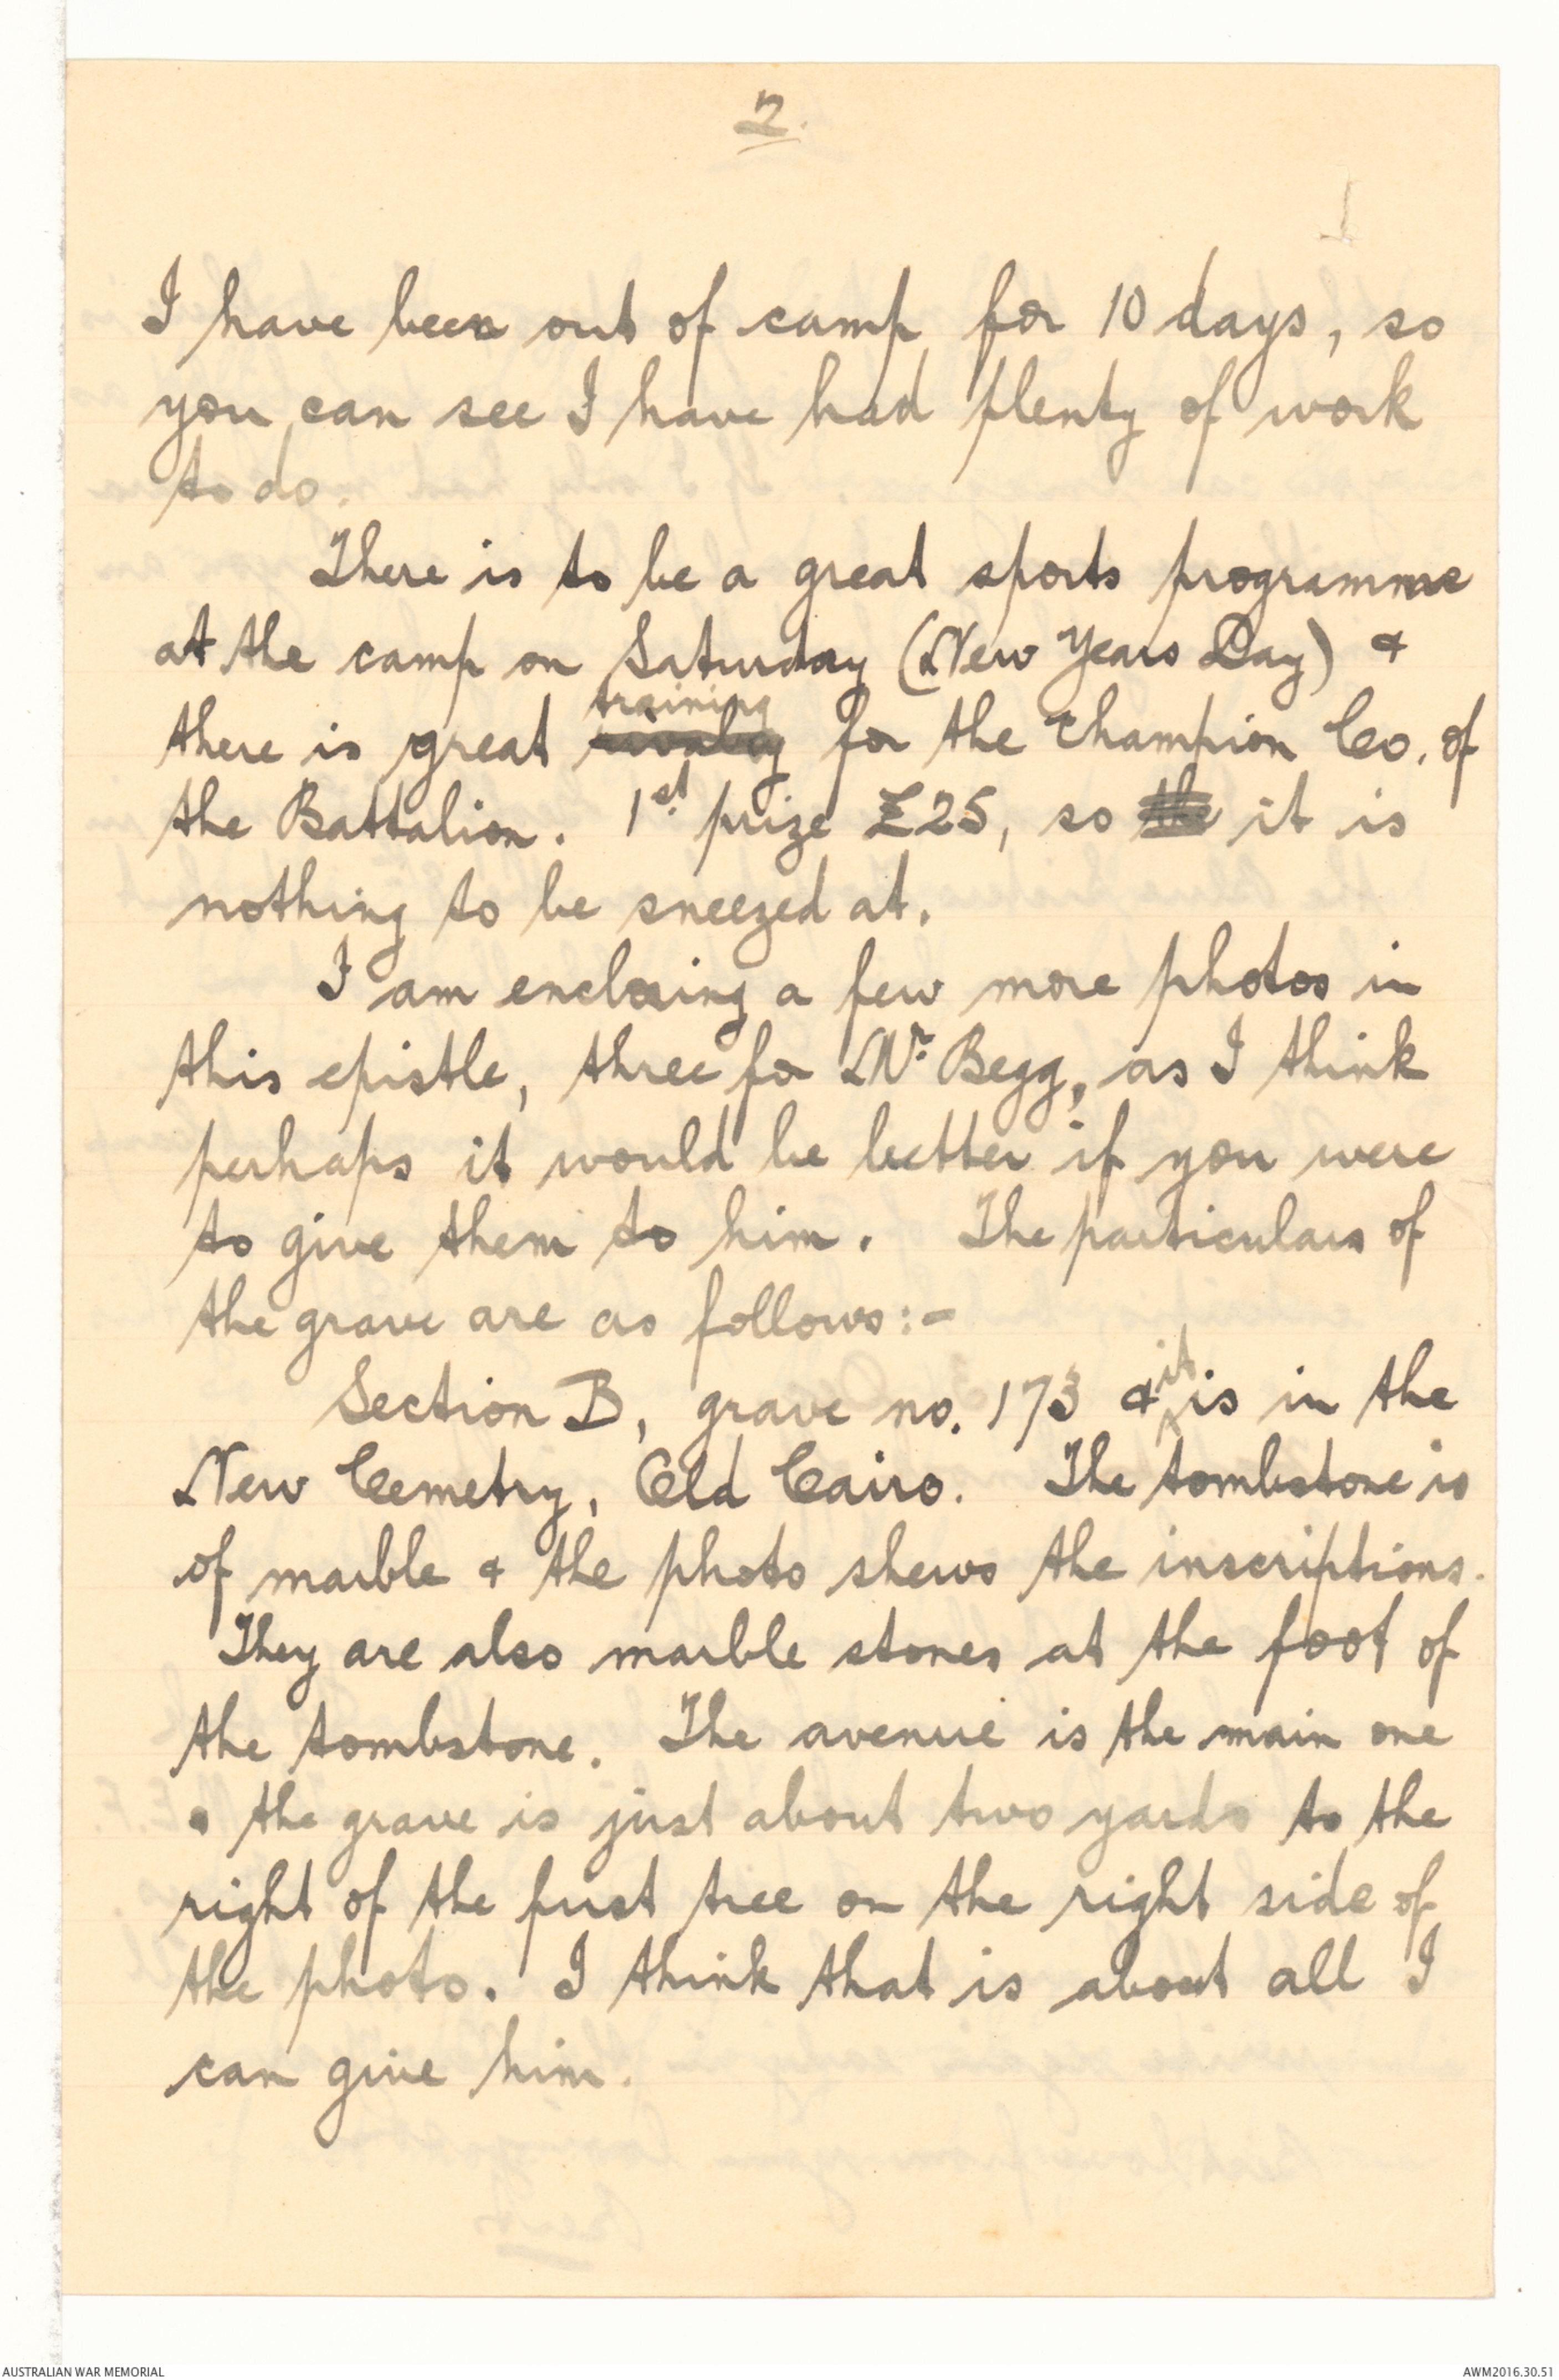 2.
I have been out of camp for 10 days, so
you can see I have had plenty of work
to do.
There is to be a great sports programme
at the camp on Saturday (New Years Day) &
training
there is great rivalry for the Champion Co. of
the Battalion. 1st prize £25, so the it is
nothing to be sneezed at.
I am enclosing a few more photos in
this epistle, three for Mr. Begg, as I think
perhaps it would be better if you were
to give them to him. The particulars of
the grave are as follows:-
it
Section B, grave no. 173 & is in the
New Cemetry, Old Cairo. The tombstone is
of marble & the photo shews the inscriptions.
They are also marble stones at the foot of
the tombstone. The avenue is the main one
& the grave is just about two yards to the
right of the first tree on the right side of
the photo. I think that is about all I
can give him.
AUSTRALIAN WAR MEMORIAL
AWM2016.30.51